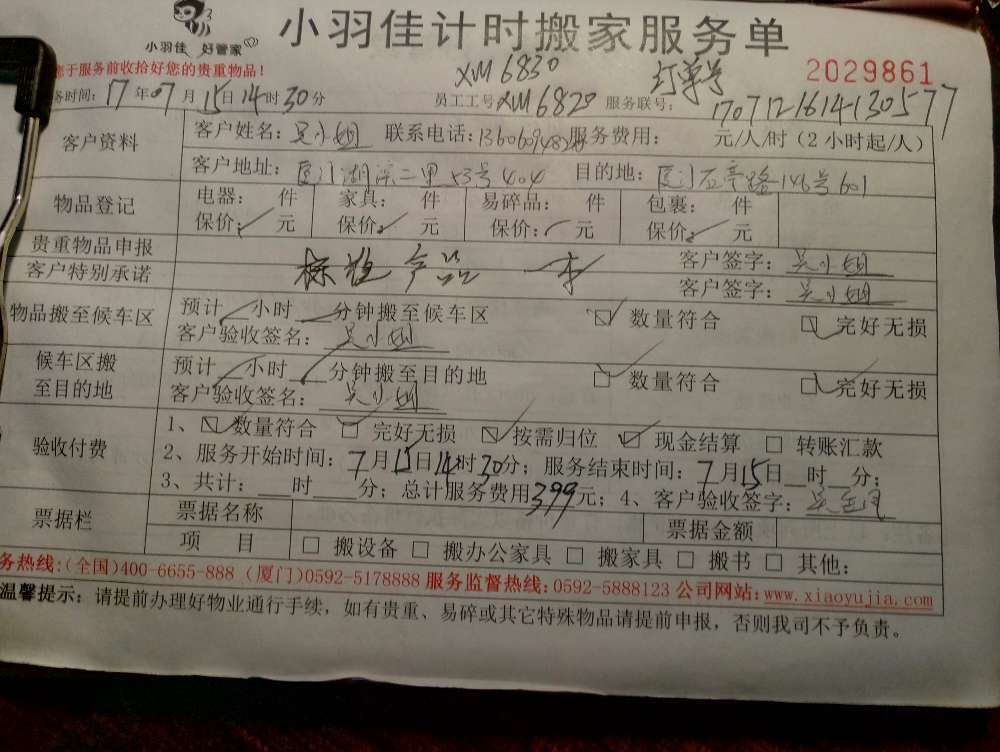 小羽佳 好管家
小羽佳计时搬家服务单
于服务前收拾好您的贵重物品！
XM6830 订单号
2029861
务时间：17年07月15日14时30分 员工工号XM6820 服务联号：
客户资料 客户姓名：吴小姐 联系电话： 服务费用： 元/人/时（2小时起/人）
客户地址：厦门湖滨二里53号404 目的地：厦门石亭路146号601
物品登记 电器： 件 家具： 件 易碎品： 件 包裹： 件
保价： 元 保价： 元 保价： 元 保价： 元
贵重物品申报 客户签字：吴小姐
客户特别承诺 标准产品 一车 客户签字：吴小姐
物品搬至候车区 预计 小时 分钟搬至候车区 ☑ 数量符合 ☑ 完好无损
客户验收签名：吴小姐
候车区搬至目的地 预计 小时 分钟搬至目的地 ☑ 数量符合 ☑ 完好无损
客户验收签名：吴小姐
验收付费 1、☑ 数量符合 ☑ 完好无损 ☑ 按需归位 ☑ 现金结算 □ 转账汇款
2、服务开始时间：7月15日14时30分；服务结束时间：7月15日 时 分；
3、共计： 时 分；总计服务费用399元；4、客户验收签字：
票据栏 票据名称 票据金额
项 目 □ 搬设备 □ 搬办公家具 □ 搬家具 □ 搬书 □ 其他：
务热线:(全国)400-6655-888 (厦门)0592-5178888 服务监督热线:0592-5888123 公司网站:www.xiaoyujia.com
温馨提示：请提前办理好物业通行手续，如有贵重、易碎或其它特殊物品请提前申报，否则我司不予负责。